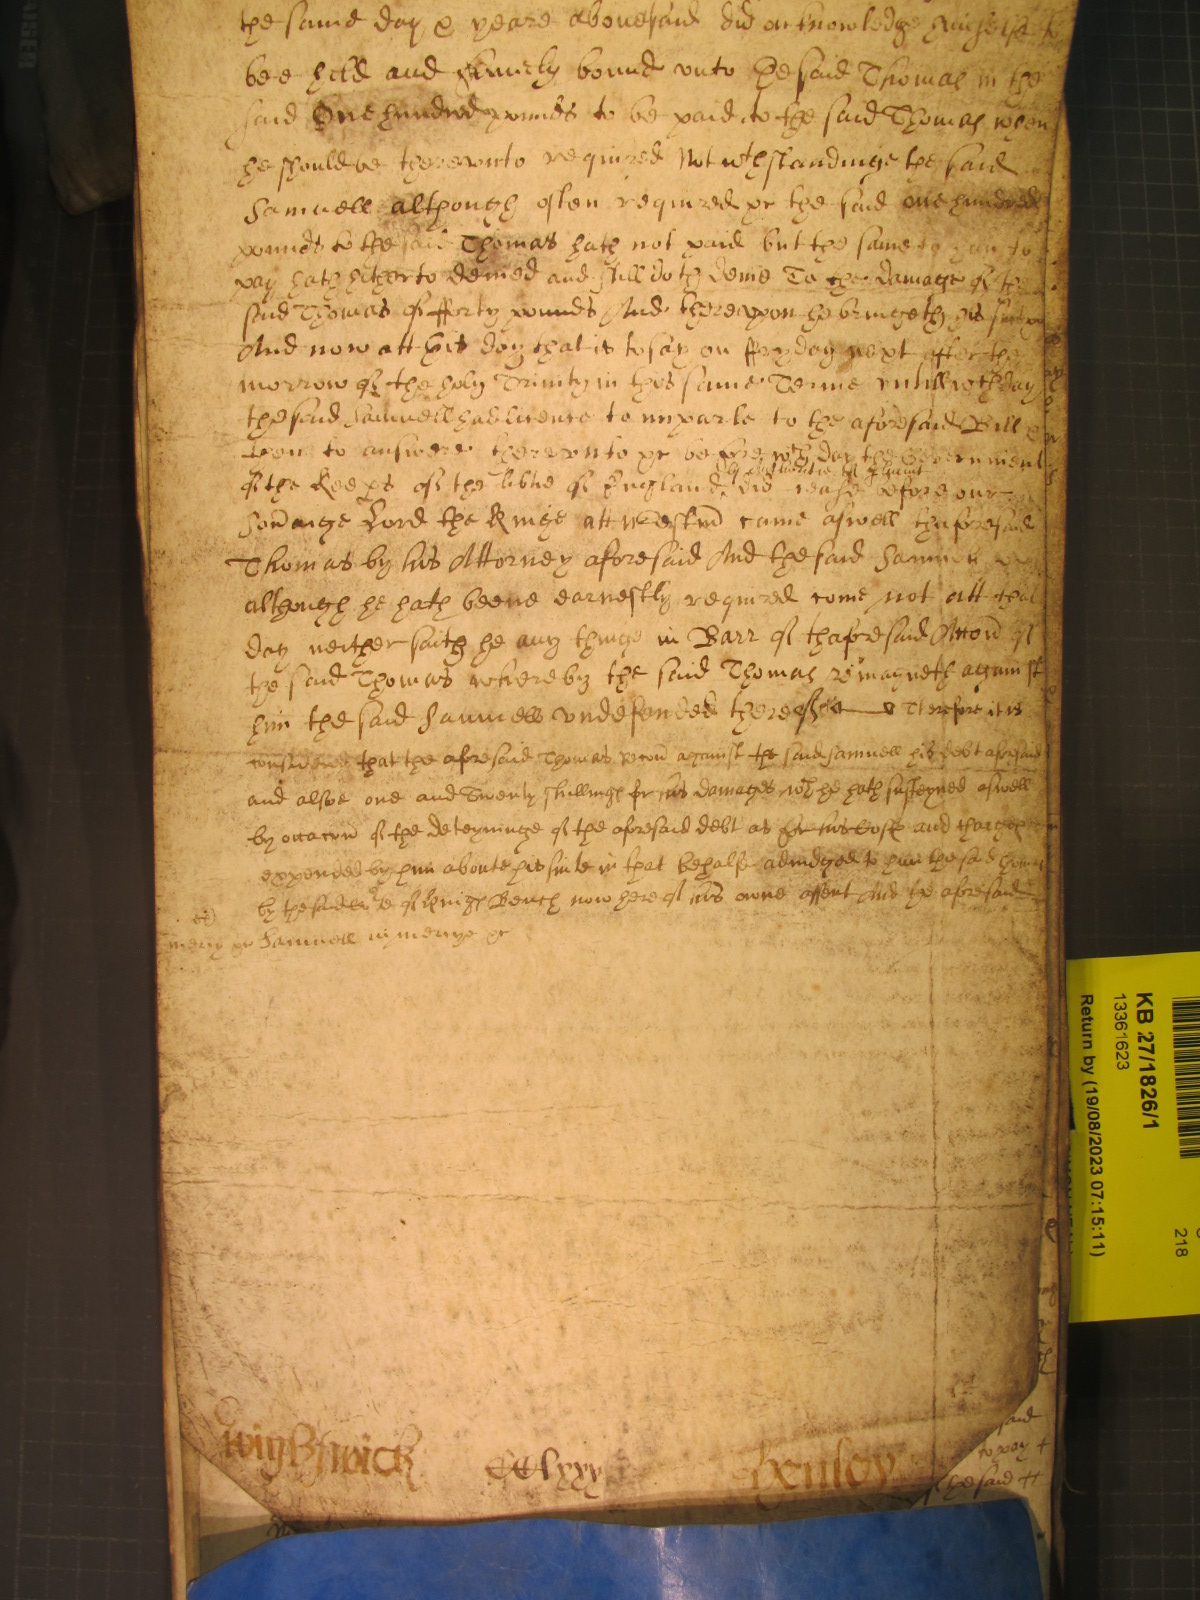 the same day & yeare abovesaid did acknowledge himselfe to
bee held and firmely bound unto the said Thomas in the
said One hundred pounds to be paid to the said Thomas when
he should be thereunto required Notwthstandinge the said
Samuell although often required &c the said one hundred
pounds to the said Thomas hath not paid but the same to him to
pay hath hitherto denied and still doth denie To the damage of the
said Thomas of fforty pounds And thereupon he bringeth his suite
And now att this day that is to say on ffryday next after the
morrow of the holy Trinity in this same Terme untill wch day
the said Samuell had licence to imparle to the aforesaid Bill
then to answere thereunto &c before wch day the Government
of the Keeps of the libtie of England by did cease before our
Sovaigne Lord the Kinge att Westmr came aswell thaforesaid
Thomas by his Attorney aforesaid And the said Samuell
although he hath beene earnestly required come not att that
day neither saith he any thinge in Barr of thaforesaid Accon of
the said Thomas whereby the said Thomas remayneth against
him the said Samuell undefended therefore Therefore it is
considered that the aforesaid Thomas recov against the said Samuell his debt aforesaid
and alsoe one and Twenty shillings for his damages wch he hath susteyned aswell
by occacon of the deteyninge of the aforesaid debt as for his Costs and charges
expended by him aboute his suite in that behalfe adiudged to him the said Thomas
by the said Cort of Kings Bench now here of his owne assent And the aforesaid
Samuell in mercye &c
mercy
Wightwick
CClxxv
Henley
said
to pay
the said
KB 27/1826/1
13361623
Return by (19/08/2023 07:15:11)
218